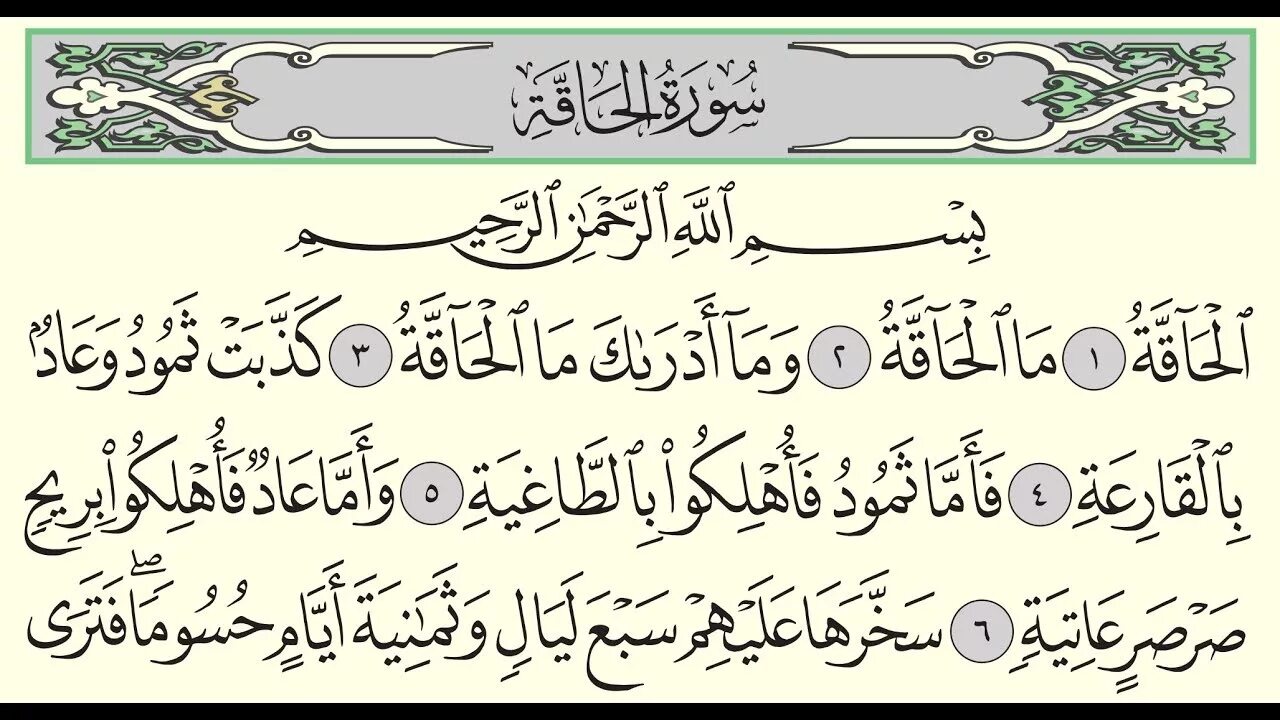 سُورَةُ الحَاقَّةِ
بِسْمِ ٱللَّهِ ٱلرَّحْمَٰنِ ٱلرَّحِيمِ
ٱلْحَآقَّةُ ١ مَا ٱلْحَآقَّةُ ٢ وَمَآ أَدْرَىٰكَ مَا ٱلْحَآقَّةُ ٣ كَذَّبَتْ ثَمُودُ وَعَادُۢ
بِٱلْقَارِعَةِ ٤ فَأَمَّا ثَمُودُ فَأُهْلِكُوا۟ بِٱلطَّاغِيَةِ ٥ وَأَمَّا عَادٌ فَأُهْلِكُوا۟ بِرِيحٍ
صَرْصَرٍ عَاتِيَةٍ ٦ سَخَّرَهَا عَلَيْهِمْ سَبْعَ لَيَالٍ وَثَمَٰنِيَةَ أَيَّامٍ حُسُومًا ۖ فَتَرَى